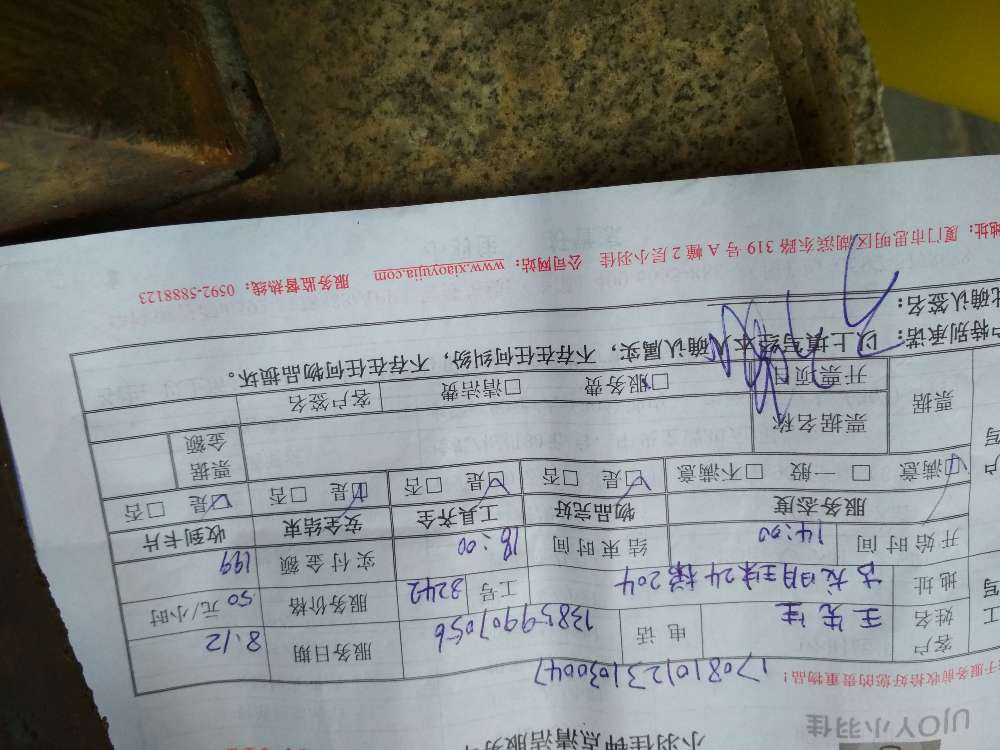 UJOY小羽佳
小羽佳钟点清洁服务单
于服务前收拾好您的贵重物品！ 1708101231030047
客户姓名 王先生 电话 13859907056 服务日期 8.12
地址 古龙明珠24梯204 工号 3242 服务价格 50 元/小时
开始时间 14:00 结束时间 18:00 实付金额 199
服务态度 物品完好 工具齐全 安全结束 收到卡片
☑满意 □一般 □不满意 ☑是 □否 ☑是 □否 ☑是 □否 ☑是 □否
票据 票据名称 票据金额
开票项目 □服务费 □清洁费 客户签名
户特别承诺：以上填写经本人确认属实，不存在任何纠纷，不存在任何物品损坏。
此确认签名：
地址：厦门市思明区湖滨东路 319 号 A 幢 2 层小羽佳 公司网站：www.xiaoyujia.com 服务监督热线：0592-5888123